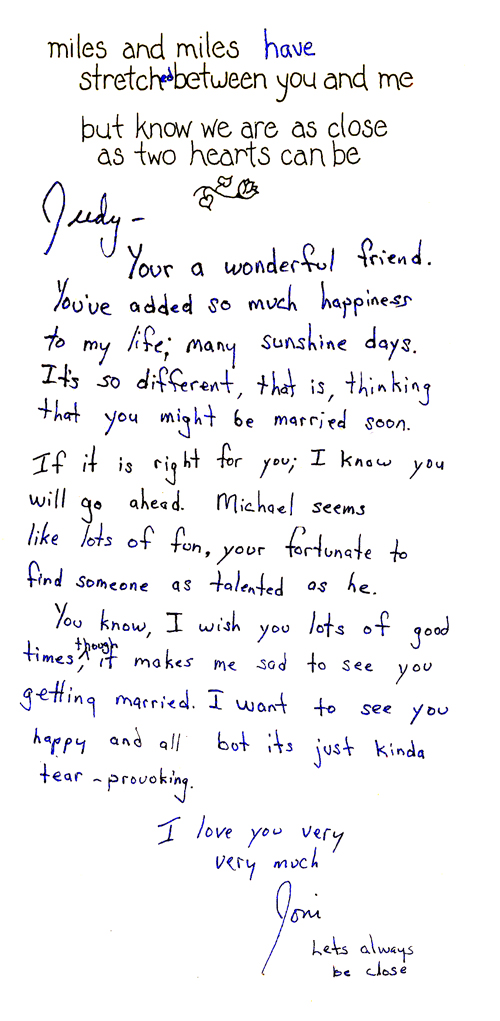 miles and miles have
stretched between you and me
but know we are as close
as two hearts can be
Judy -
Your a wonderful friend.
You've added so much happiness
to my life; many sunshine days.
It's so different, that is, thinking
that you might be married soon.
If it is right for you; I know you
will go ahead. Michael seems
like lots of fun, your fortunate to
find someone as talented as he.
You know, I wish you lots of good
times, though it makes me sad to see you
getting married. I want to see you
happy and all but its just kinda
tear - provoking.
I love you very
very much
Joni
Lets always
be close